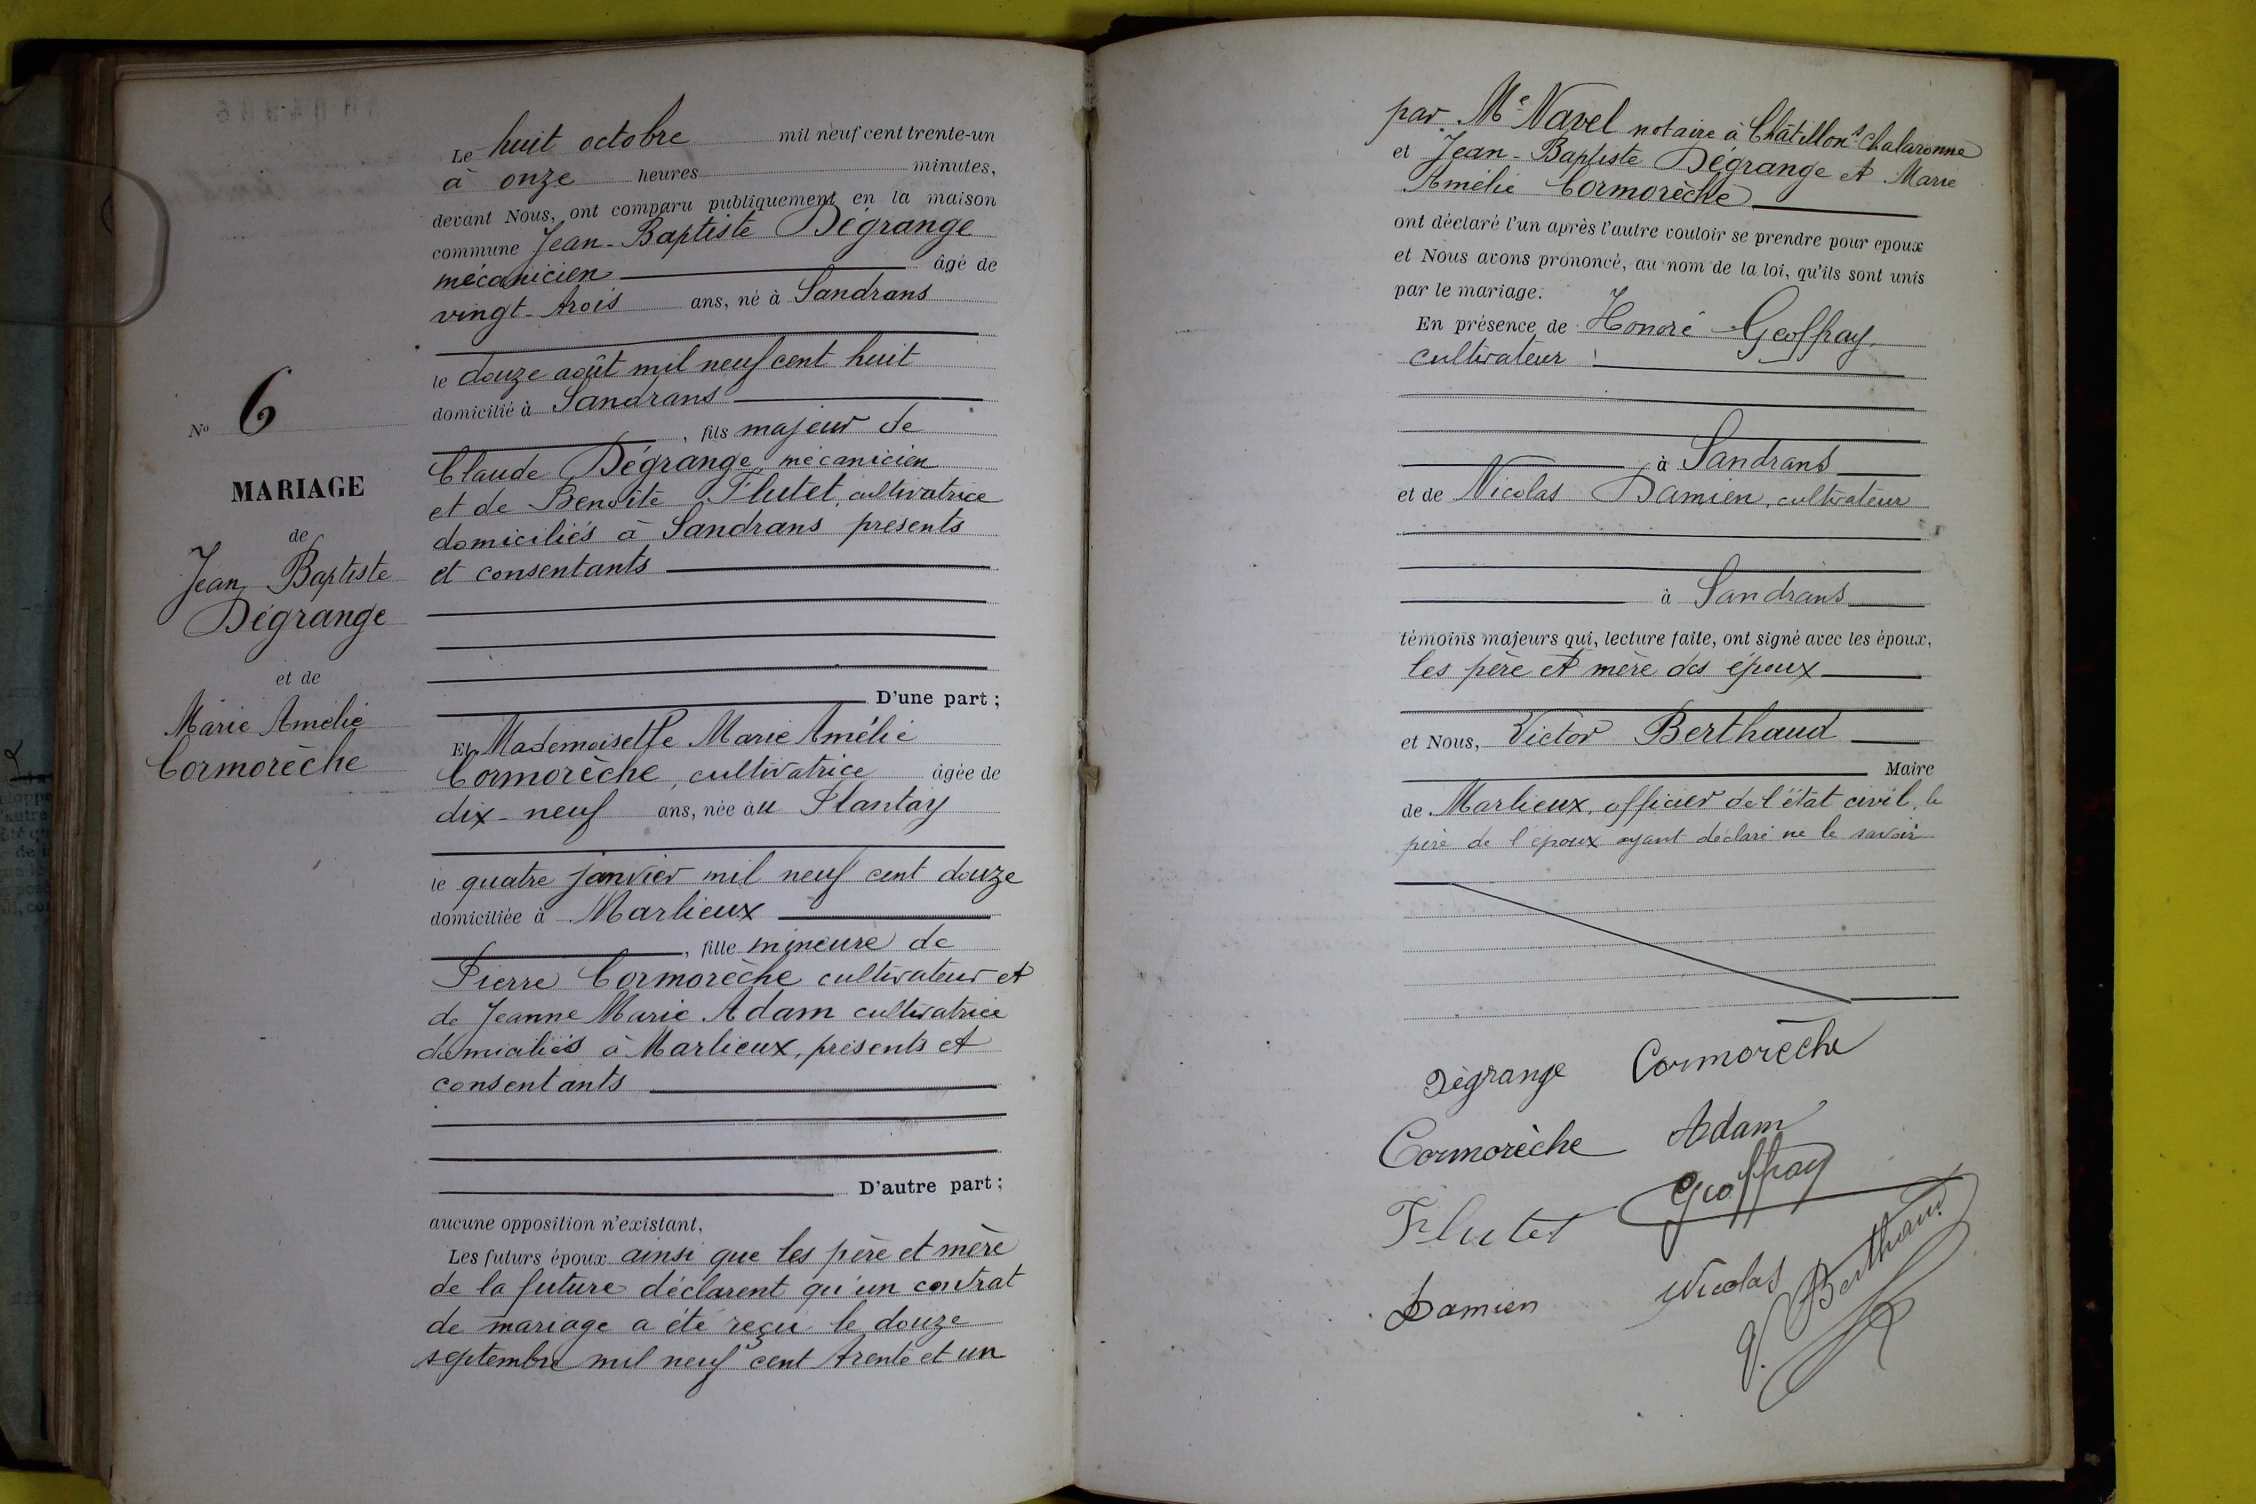 N° 6
MARIAGE
de
Jean Baptiste
Dégrange
et de
Marie Amélie
Cormorèche
Le huit octobre mil neuf cent trente-un
à onze heures minutes,
devant Nous, ont comparu publiquement en la maison
commune Jean-Baptiste Dégrange
mécanicien âgé de
vingt-trois ans, né à Sandrans
le douze août mil neuf cent huit
domicilié à Sandrans
, fils majeur de
Claude Dégrange, mécanicien
et de Benoîte Flutet, cultivatrice
domiciliés à Sandrans, présents
et consentants
D'une part ;
Et Mademoiselle Marie Amélie
Cormorèche, cultivatrice âgée de
dix-neuf ans, née au Plantay
le quatre janvier mil neuf cent douze
domiciliée à Marlieux
, fille mineure de
Pierre Cormorèche cultivateur et
de Jeanne Marie Adam cultivatrice
domiciliés à Marlieux, présents et
consentants
D'autre part ;
aucune opposition n'existant,
Les futurs époux ainsi que les père et mère
de la future déclarent qu'un contrat
de mariage a été reçu le douze
septembre mil neuf cent trente et un
par Me Navel notaire à Châtillon s Chalaronne
et Jean-Baptiste Dégrange et Marie
Amélie Cormorèche
ont déclaré l'un après l'autre vouloir se prendre pour époux
et Nous avons prononcé, au nom de la loi, qu'ils sont unis
par le mariage.
En présence de Honoré Geoffray,
cultivateur
à Sandrans
et de Nicolas Damien, cultivateur
à Sandrans
témoins majeurs qui, lecture faite, ont signé avec les époux,
les père et mère des époux
et Nous, Victor Berthaud
Maire
de Marlieux, officier de l'état civil, le
père de l'époux ayant déclaré ne le savoir
Dégrange Cormorèche
Cormorèche Adam
Flutet Geoffray
Damien Nicolas V. Berthaud